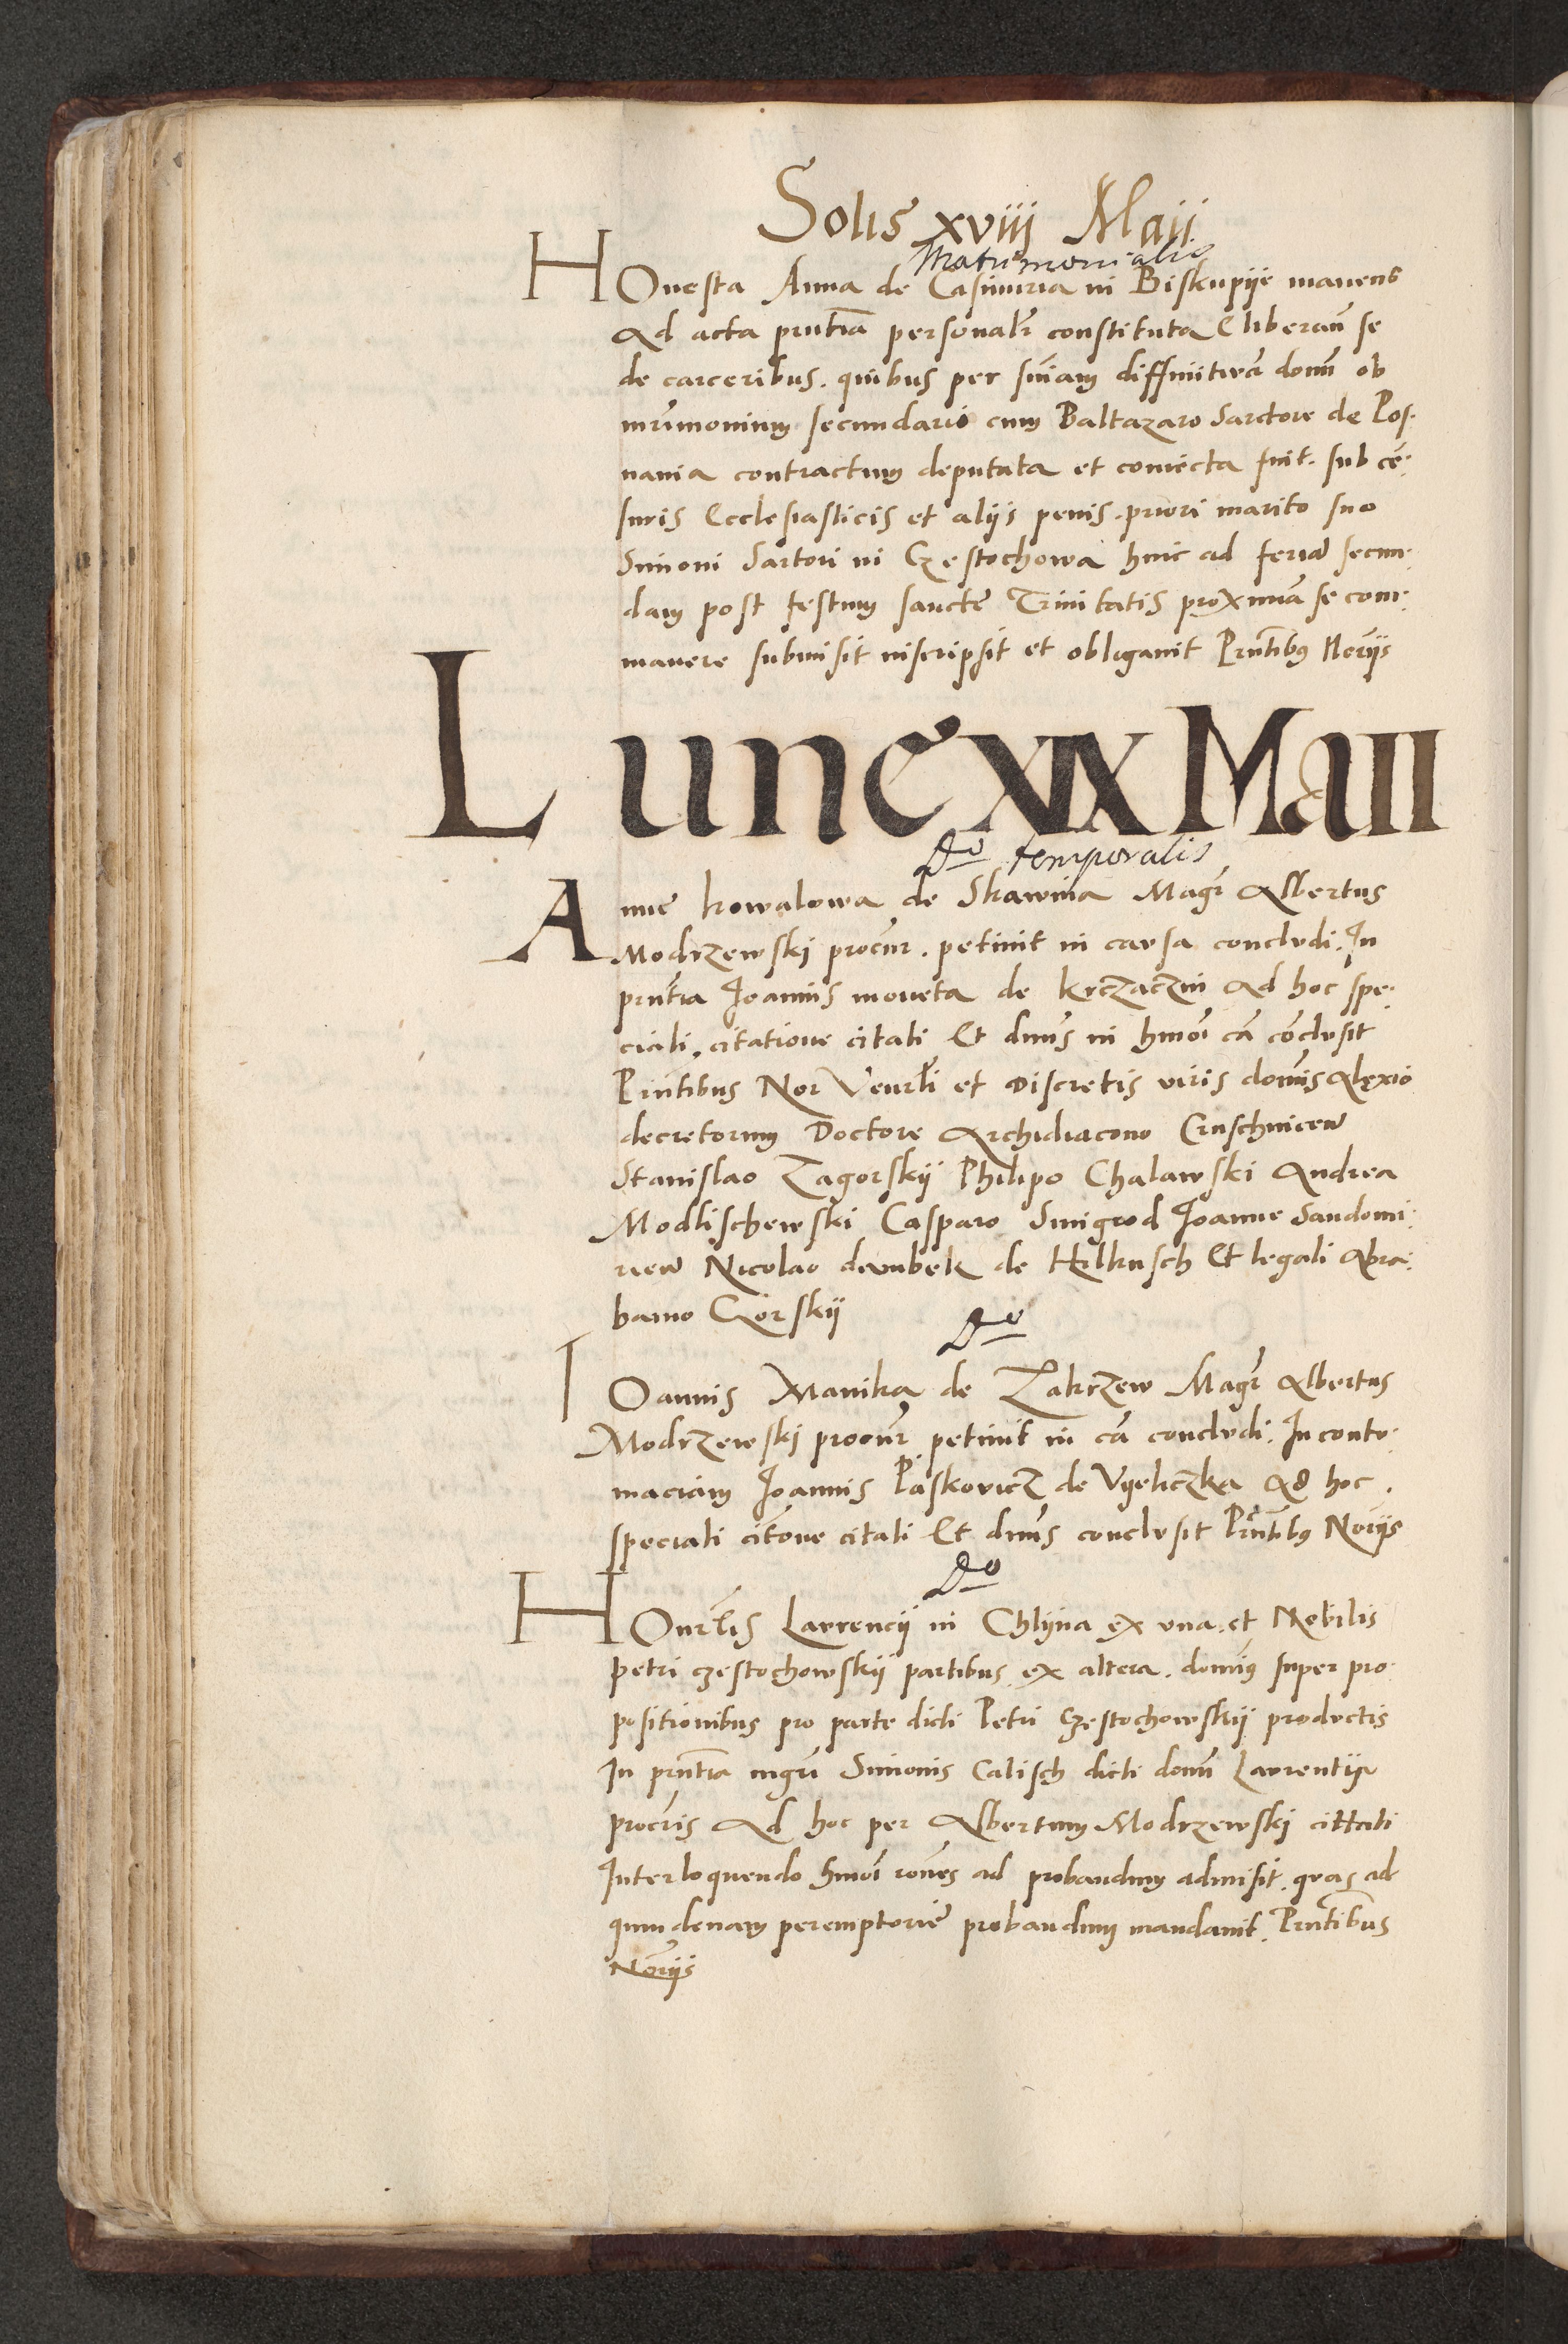 Solis xviij Maij
Matrimonialis
HOnesta Anna de Casimiria in Biskupije manens
Ad acta pñtia personalr̃ constituta Eliberañ se
de carceribus. quibus per sñiam diffinitivã domĩ ob
mr̃imonium secundario cum Baltazaro Sartore de Pos-
nania contractum deputata et coniecta fuit. sub cẽ-
suris Ecclesiasticis et alijs penis. priori marito suo
Simoni Sartori in Czestochowa hinc ad feriã secun-
dam post festum sancte Trinitatis proximã se com-
manere submisit inscripsit et obligavit Prñtibus Noriis
Lune xix Maii
do temporalis
Anne kowalowa de Skawina Magr̃ Albertus
Modrzewski procur̃. petivit in causa concludi. In
pñtia Joannis moneta de krczaczin Ad hoc spe-
ciali. citatione citati Et dnũs in hmõi cã cõclusit
Prñtibus Nor Venrli et Discretis viris dominis Alexio
decretorum Doctore Archidiacono Cruschvicen
Stanislao Zagorskij Philipo Chalawski Andrea
Modlischewski Casparo Smigrod Joanne Sandomi-
rien Nicolao dembek de Hilkusch Et legali Abra-
hamo Gorskij
do
IOannis Manika de Zakrzew Magr̃ Albertus
Modrzewski procur̃ petivit in cã concludi. In contu-
maciam Joannis Paskovicz de Vyeliczka Ad hoc
speciali citõne citati Et dnũs conclusit Prñtibus Noriis
do
HOnr̃lis Laurencij in Chlijna ex una. et Nobilis
Petri czestochowskij partibus ex altera. dominus super pro-
positionibus pro parte dicti Petri Czestochowskij productis
In prñtia mgr̃i Simonis Calisch dicti domĩ Laurentij
procr̃is Ad hoc per Albertum Modrzewski cittati
Interloquendo hmõi rones ad probandum admisit. quas ad
quindenam peremptorie probandum mandavit. Prñtibus
Noriis